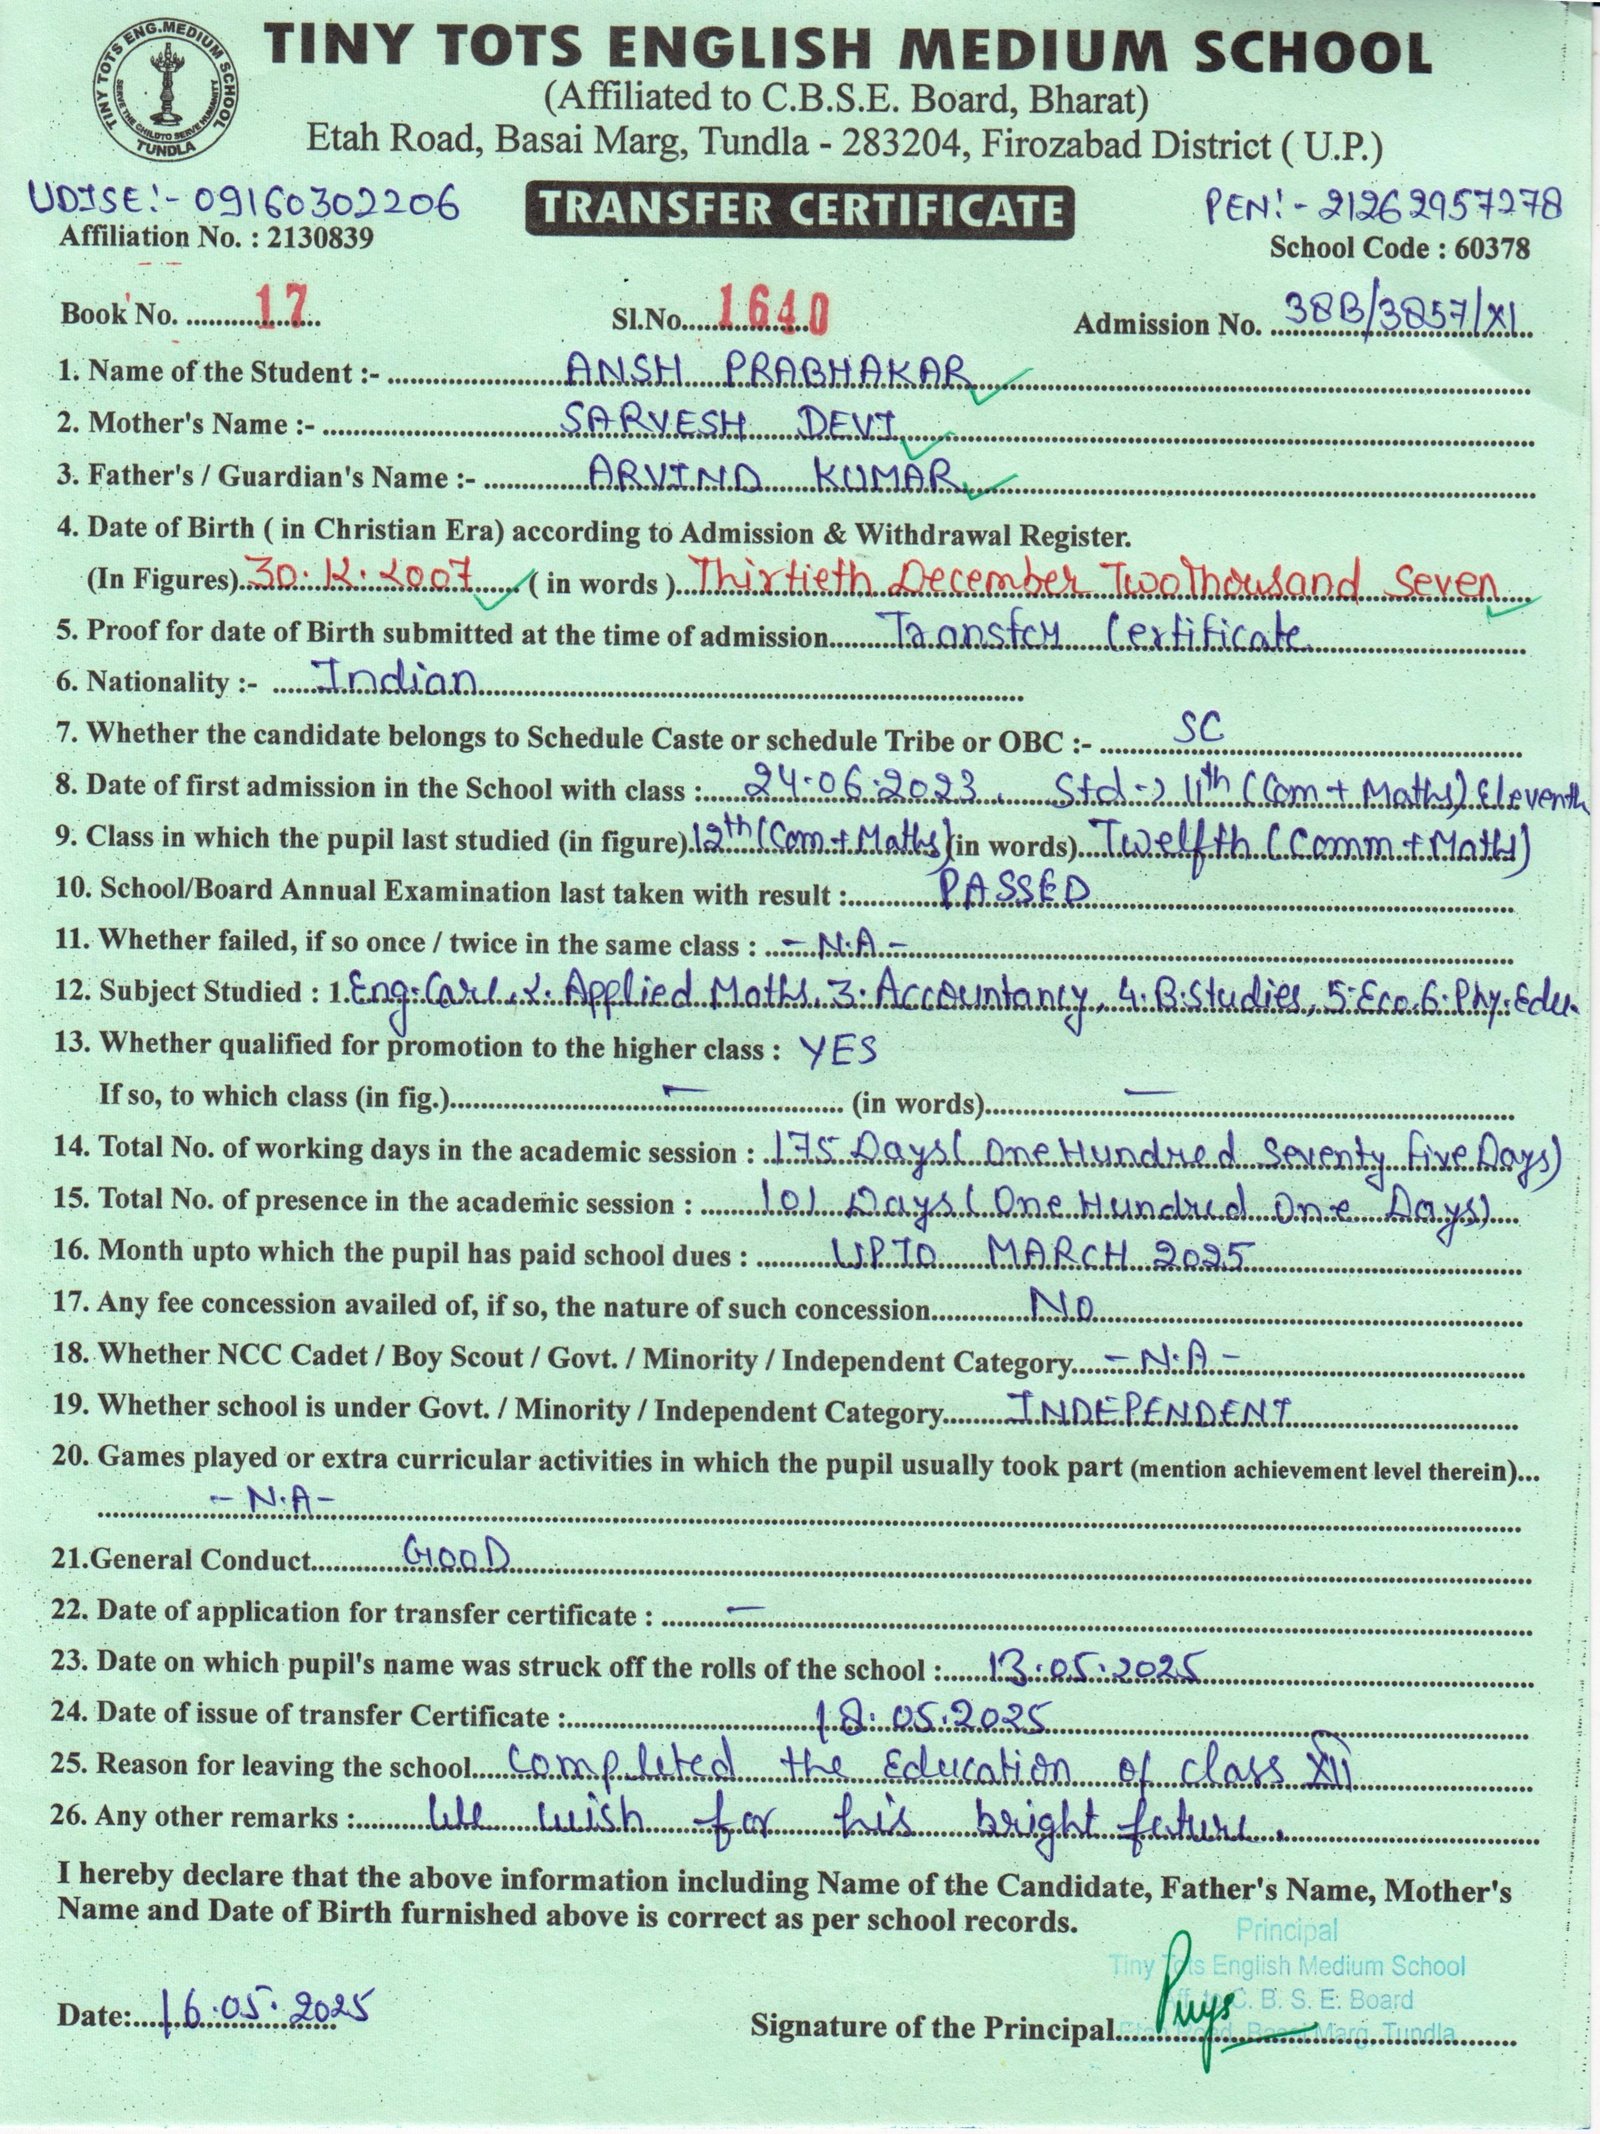 TINY TOTS ENG.MEDIUM SCHOOL
SERVE THE CHILD TO SERVE HUMANITY
TUNDLA
TINY TOTS ENGLISH MEDIUM SCHOOL
(Affiliated to C.B.S.E. Board, Bharat)
Etah Road, Basai Marg, Tundla - 283204, Firozabad District ( U.P.)
UDISE:- 09160302206
TRANSFER CERTIFICATE
PEN:- 21262957278
Affiliation No. : 2130839
School Code : 60378
Book No. 17 Sl.No. 1640 Admission No. 38B/3857/XI
1. Name of the Student :- ANSH PRABHAKAR
2. Mother's Name :- SARVESH DEVI
3. Father's / Guardian's Name :- ARVIND KUMAR
4. Date of Birth ( in Christian Era) according to Admission & Withdrawal Register.
(In Figures) 30.12.2007 ( in words ) Thirtieth December Two Thousand Seven
5. Proof for date of Birth submitted at the time of admission Transfer Certificate
6. Nationality :- Indian
7. Whether the candidate belongs to Schedule Caste or schedule Tribe or OBC :- SC
8. Date of first admission in the School with class : 24.06.2023. Std -> 11th (Com + Maths) Eleventh
9. Class in which the pupil last studied (in figure) 12th (Com + Maths) (in words) Twelfth (Comm + Maths)
10. School/Board Annual Examination last taken with result : PASSED
11. Whether failed, if so once / twice in the same class : - N.A -
12. Subject Studied : 1. Eng. Core, 2. Applied Maths, 3. Accountancy, 4. B.Studies, 5. Eco, 6. Phy. Edu.
13. Whether qualified for promotion to the higher class : YES
If so, to which class (in fig.) — (in words) —
14. Total No. of working days in the academic session : 175 Days ( One Hundred Seventy Five Days)
15. Total No. of presence in the academic session : 101 Days ( One Hundred One Days)
16. Month upto which the pupil has paid school dues : UPTO MARCH 2025
17. Any fee concession availed of, if so, the nature of such concession No
18. Whether NCC Cadet / Boy Scout / Govt. / Minority / Independent Category - N.A -
19. Whether school is under Govt. / Minority / Independent Category INDEPENDENT
20. Games played or extra curricular activities in which the pupil usually took part (mention achievement level therein)...
- N.A -
21.General Conduct GOOD
22. Date of application for transfer certificate : —
23. Date on which pupil's name was struck off the rolls of the school : 13.05.2025
24. Date of issue of transfer Certificate : 18.05.2025
25. Reason for leaving the school completed the Education of class XII
26. Any other remarks : We wish for his bright future.
I hereby declare that the above information including Name of the Candidate, Father's Name, Mother's
Name and Date of Birth furnished above is correct as per school records.
Principal
Tiny Tots English Medium School
Aff. to C. B. S. E. Board
Etah Road, Basai Marg, Tundla
Date: 16.05.2025
Signature of the Principal